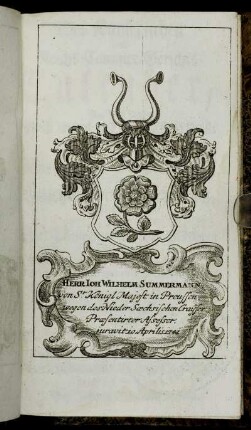 HERR IOH WILHELM SUMMERMANN
von Sr. Königl Majest in Preussen
wegen des Nieder Sæchsischen Craisses
Præsentirter Assessor
juravit 10 Aprilis